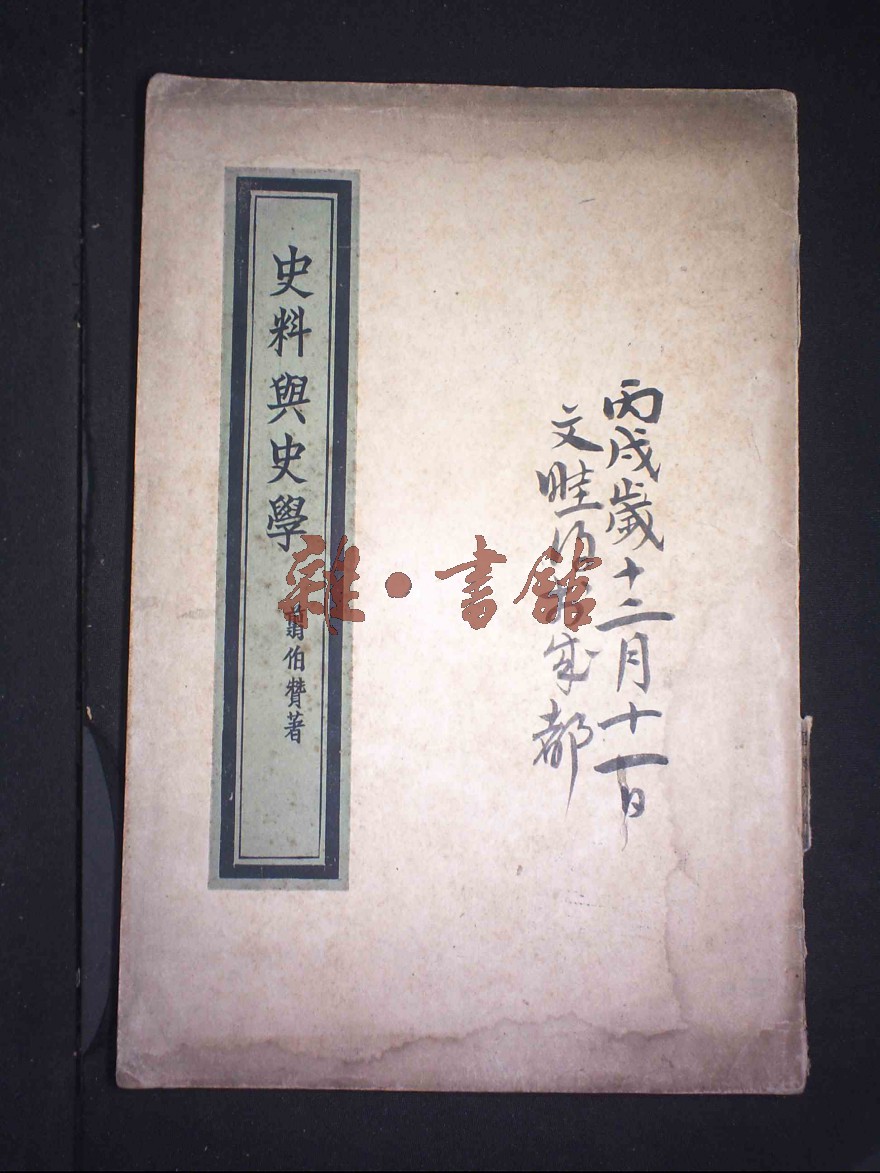 丙戌歲十二月十一日
文畦成都
史料與史學
翦伯贊著
雜·書館